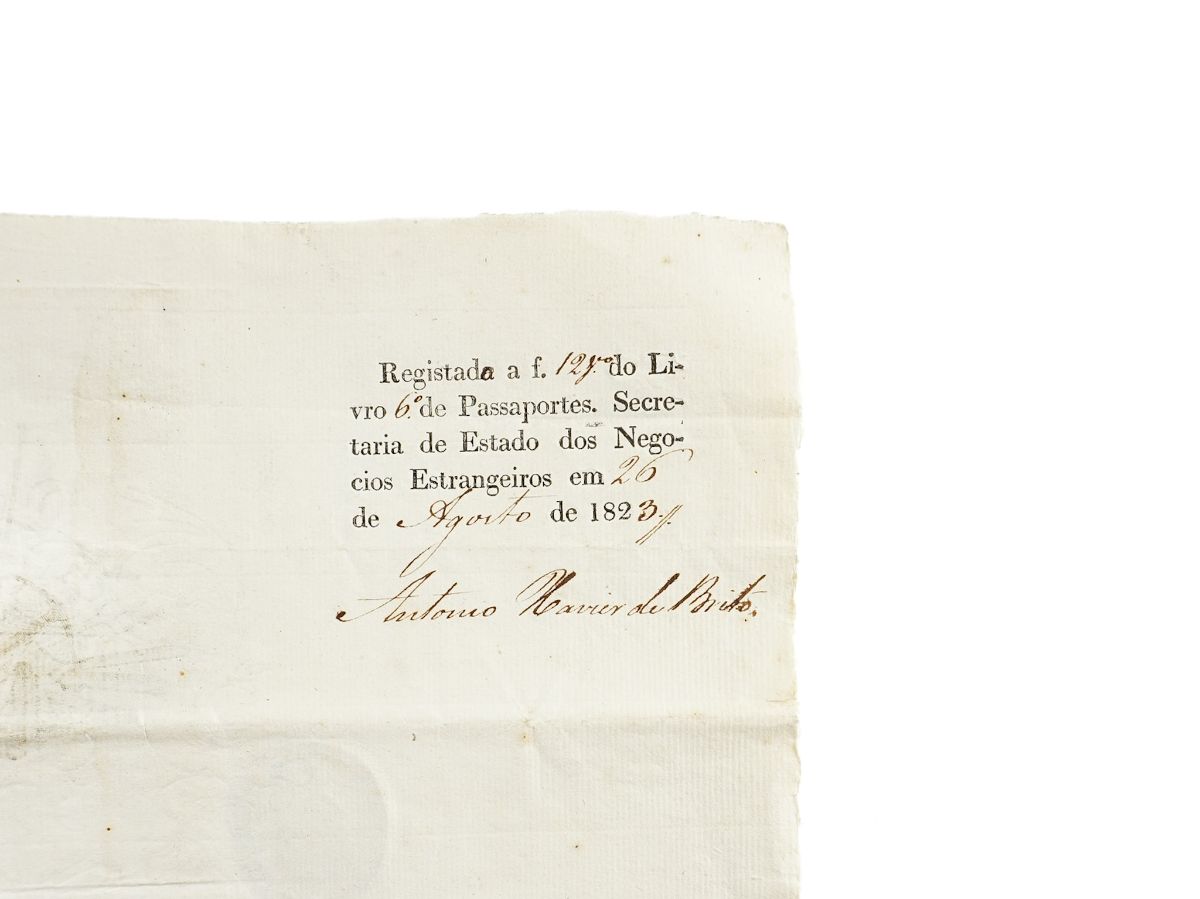 Registada a f. 12 v.º do Li-
vro 6.º de Passaportes. Secre-
taria de Estado dos Nego-
cios Estrangeiros em 26
de Agosto de 1823 //
Antonio Xavier de Brito.